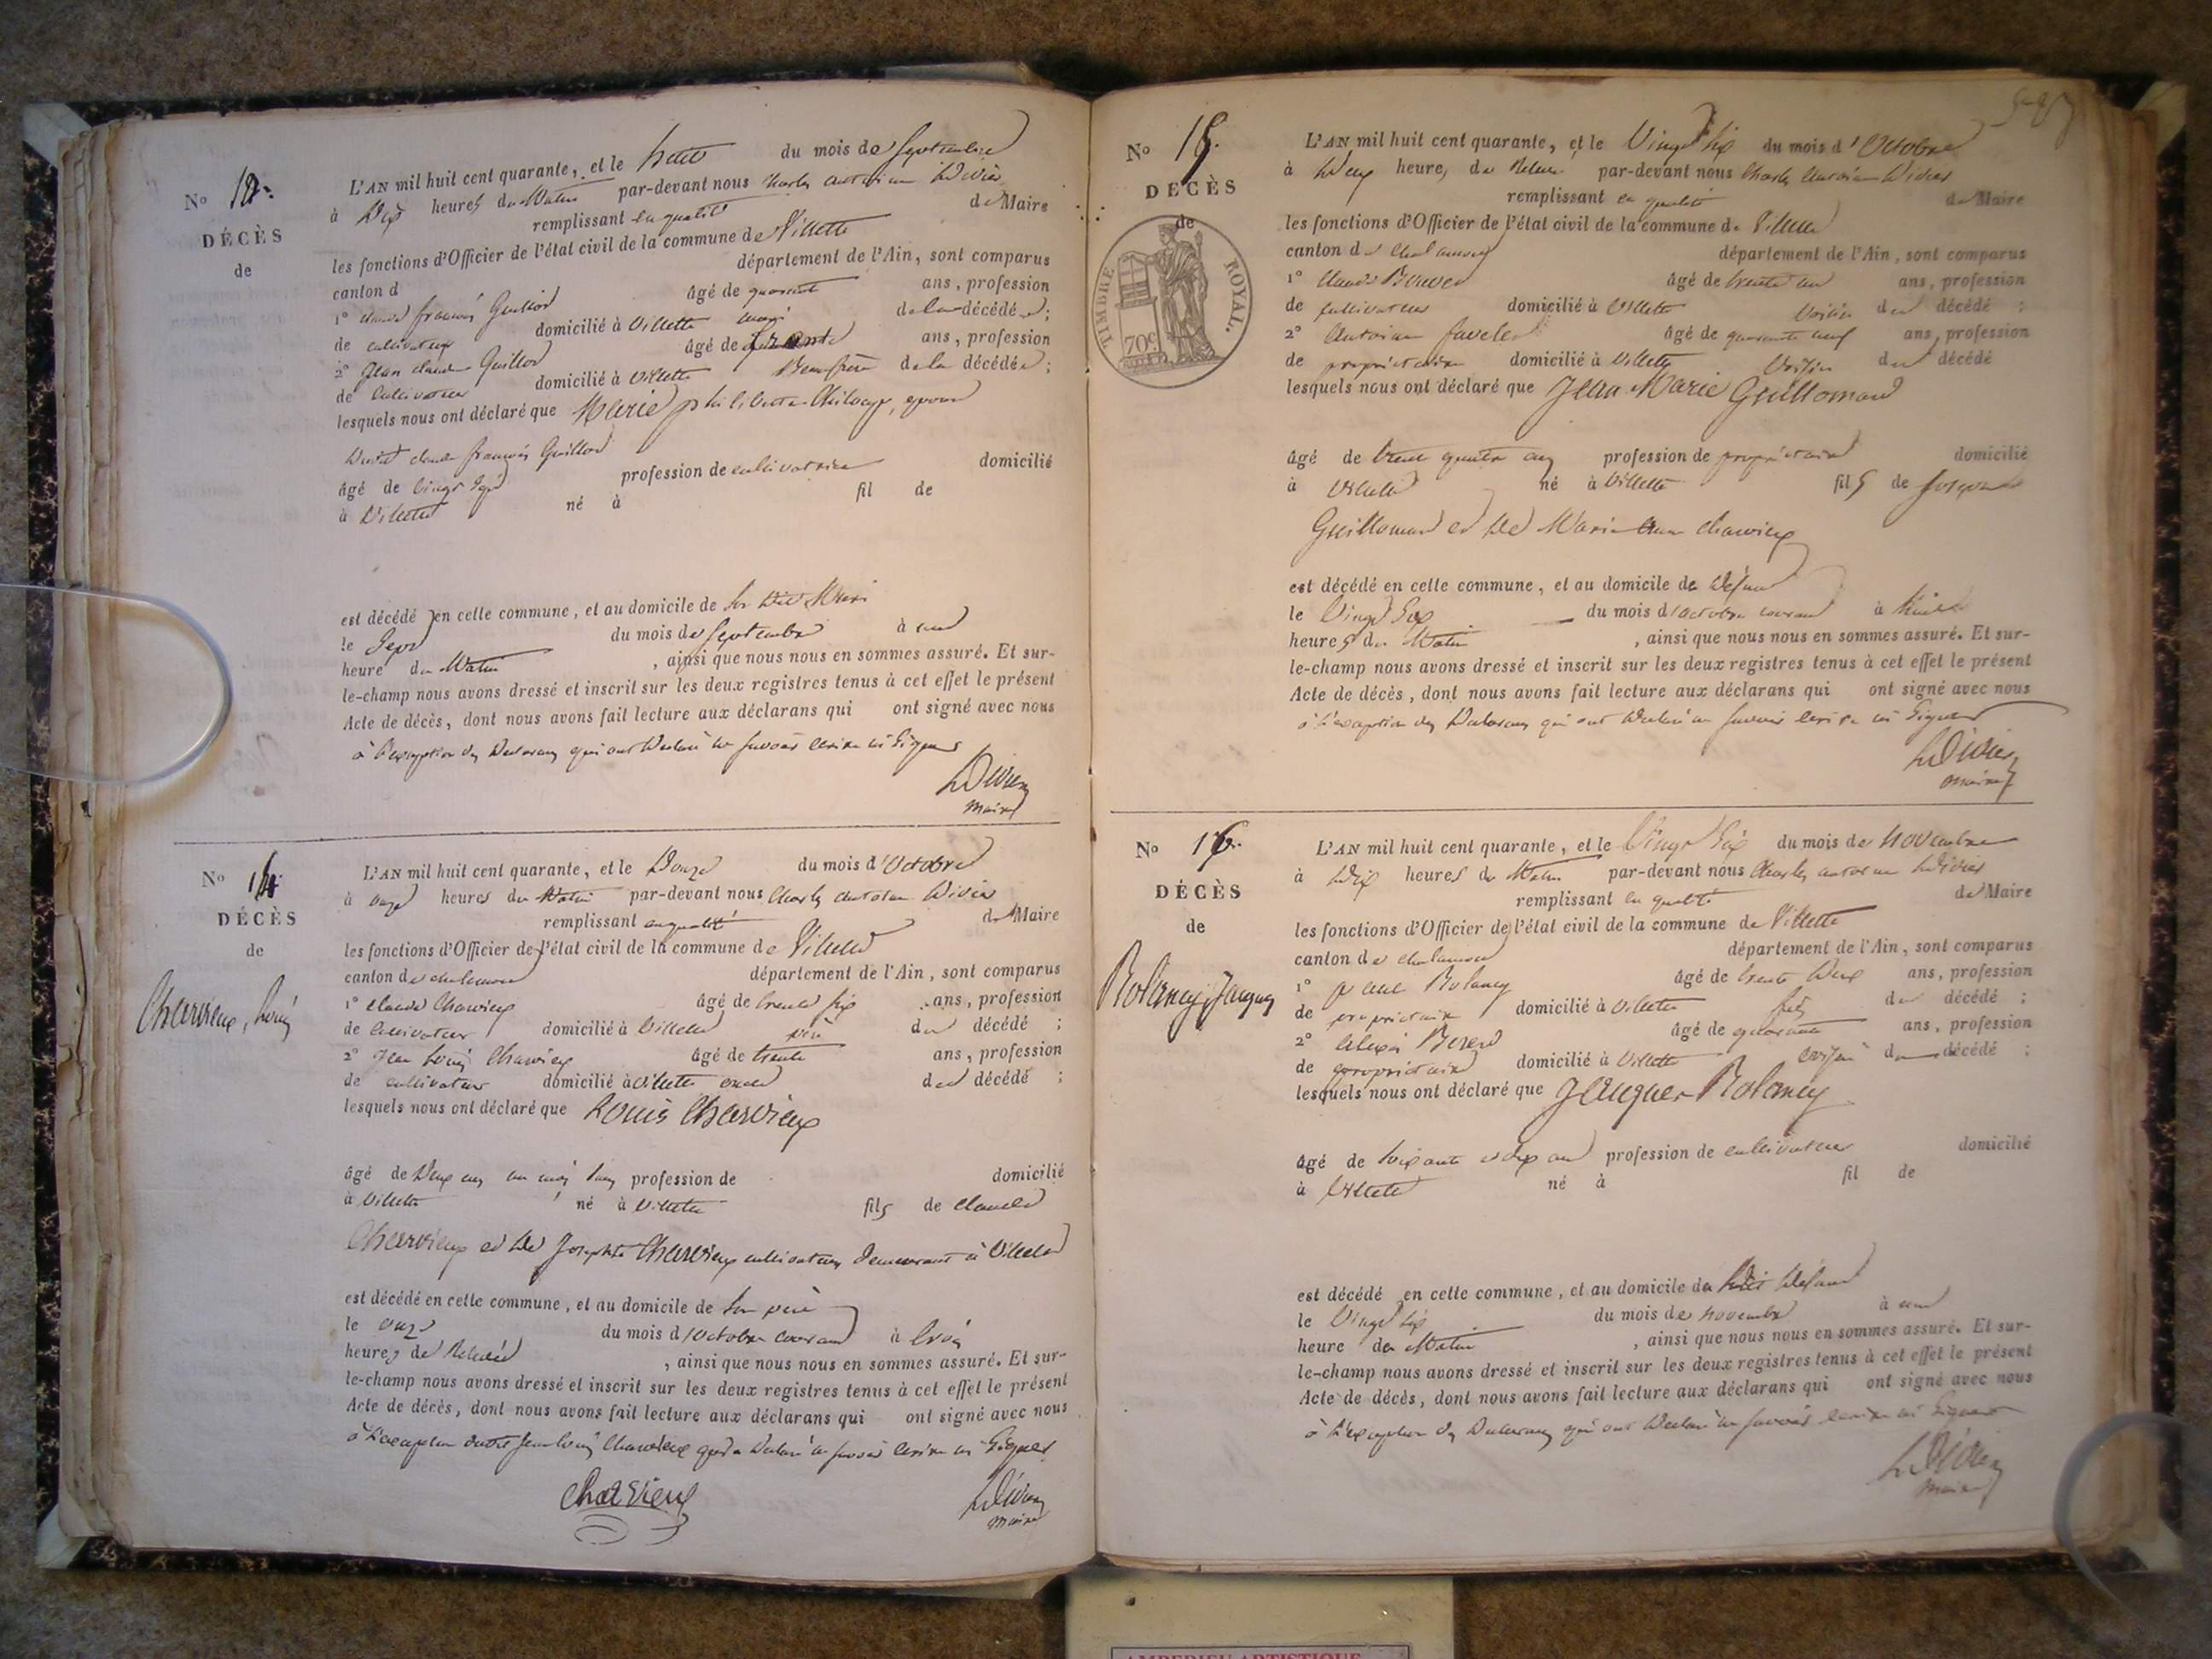 No 13.
DÉCÈS
de
L'AN mil huit cent quarante, et le huit du mois de Septembre
à Dix heures du Matin par-devant nous Charles antoine Didier
remplissant en qualité de Maire
les fonctions d'Officier de l'état civil de la commune de Villette
canton d département de l'Ain, sont comparus
1° Claude françois Guillod âgé de quarante ans, profession
de cultivateur domicilié à Villette mari de la décédée;
2° Jean Claude Guillod âgé de trente ans, profession
de Cultivateur domicilié à Villette Beau frère de la décédée;
lesquels nous ont déclaré que Marie philiberte épouse
Dudit Claude françois Guillod
âgé de vingt Sept profession de cultivatrice domicilié
à Villette né à fil de
est décédé en cette commune, et au domicile de Son Dit Mari
le Sept du mois de Septembre à une
heure du Matin, ainsi que nous nous en sommes assuré. Et sur-
le-champ nous avons dressé et inscrit sur les deux registres tenus à cet effet le présent
Acte de décès, dont nous avons fait lecture aux déclarans qui ont signé avec nous
à l'exception des Déclarans qui ont Déclaré ne savoir écrire ni Signer
Didier
maire
No 14.
DÉCÈS
de
Charvieux, Louis
L'AN mil huit cent quarante, et le Douze du mois d'Octobre
à onze heures du Matin par-devant nous Charles antoine Didier
remplissant en qualité de Maire
les fonctions d'Officier de l'état civil de la commune de Villette
canton de chalamont département de l'Ain, sont comparus
1° Claude Charvieux âgé de trente six ans, profession
de Cultivateur domicilié à Villette père du décédé;
2° Jean Louis Charvieux âgé de trente ans, profession
de cultivateur domicilié à Villette oncle du décédé;
lesquels nous ont déclaré que Louis Charvieux
âgé de Deux ans un mois profession de domicilié
à Villette né à Villette fils de Claude
Charvieux et de Josephte Charvieux cultivateurs Demeurant à Villette
est décédé en cette commune, et au domicile de Son père
le onze du mois d'Octobre courant à trois
heures de Relevée, ainsi que nous nous en sommes assuré. Et sur-
le-champ nous avons dressé et inscrit sur les deux registres tenus à cet effet le présent
Acte de décès, dont nous avons fait lecture aux déclarans qui ont signé avec nous
à l'exception dudit Jean Louis Charvieux qui a Déclaré ne savoir écrire ni Signer
Charvieux
Didier
maire
No 15.
DÉCÈS
de
TIMBRE ROYAL.
70c
L'AN mil huit cent quarante, et le Vingt Six du mois d'Octobre
à Deux heures de Relevée par-devant nous Charles Antoine Didier
remplissant en qualité de Maire
les fonctions d'Officier de l'état civil de la commune de Villette
canton de chalamont département de l'Ain, sont comparus
1° Claude Bouvet âgé de trente un ans, profession
de cultivateur domicilié à Villette Voisin du décédé;
2° Antoine âgé de quarante neuf ans, profession
de propriétaire domicilié à Villette Voisin du décédé
lesquels nous ont déclaré que Jean-Marie Guillomard
âgé de trente quatre ans profession de propriétaire domicilié
à Villette né à Villette fils de Joseph
Guillomard et de Marie Charvieux
est décédé en cette commune, et au domicile du Défunt
le Vingt Six du mois d'Octobre courant à huit
heures du Matin, ainsi que nous nous en sommes assuré. Et sur-
le-champ nous avons dressé et inscrit sur les deux registres tenus à cet effet le présent
Acte de décès, dont nous avons fait lecture aux déclarans qui ont signé avec nous
à l'exception des Déclarans qui ont Déclaré ne savoir écrire ni Signer
Didier
maire
No 16.
DÉCÈS
de
Rolancy, Jacques
L'AN mil huit cent quarante, et le Vingt Six du mois de novembre
à Dix heures du Matin par-devant nous Charles antoine Didier
remplissant en qualité de Maire
les fonctions d'Officier de l'état civil de la commune de Villette
canton de chalamont département de l'Ain, sont comparus
1° Rolancy âgé de trente Deux ans, profession
de propriétaire domicilié à Villette fils du décédé;
2° Alexis Bererd âgé de quarante ans, profession
de propriétaire domicilié à Villette voisin du décédé;
lesquels nous ont déclaré que Jacques Rolancy
âgé de Soixante et dix ans profession de cultivateur domicilié
à Villette né à fil de
est décédé en cette commune, et au domicile du Dit Défunt
le Vingt Six du mois de novembre à une
heure du Matin, ainsi que nous nous en sommes assuré. Et sur-
le-champ nous avons dressé et inscrit sur les deux registres tenus à cet effet le présent
Acte de décès, dont nous avons fait lecture aux déclarans qui ont signé avec nous
à l'exception des Déclarans qui ont Déclaré ne savoir écrire ni Signer
Didier
maire
AMBERIEU ARTISTIQUE